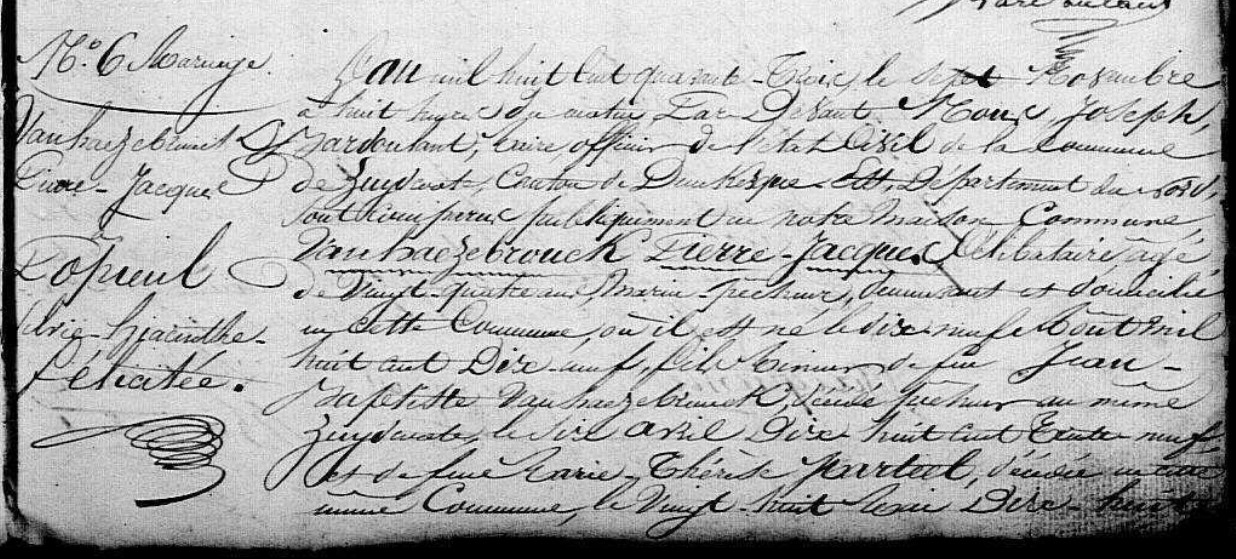 N.° 6 Mariage.
Vanhaezebrouck
Pierre-Jacques
Popieul
Marie-Hiacinthe-
Félicitée.
L'an mil huit cent quarante-Trois, le sept Novembre
à huit heures du matin Par Devant Nous, Joseph,
maire, officier de l'état Civil de la Commune
de Zuydcoote, Canton de Dunkerque-Est, Département du Nord,
sont comparus publiquement en notre maison Commune,
Vanhaezebrouck Pierre-Jacques Célibataire, âgé
de Vingt-quatre ans, Marin-pêcheur, demeurant et domicilié
en cette Commune, où il est né le dix-neuf Août mil
huit cent Dix-neuf, fils mineur de feu Jean-
Baptiste Vanhaezebrouck, décédé pêcheur au même
Zuydcoote, le six avril Dix-huit cent Trente-neuf,
et de feue Marie-Thérèse, décédée en cette
même Commune, le Vingt-huit Dix-huit